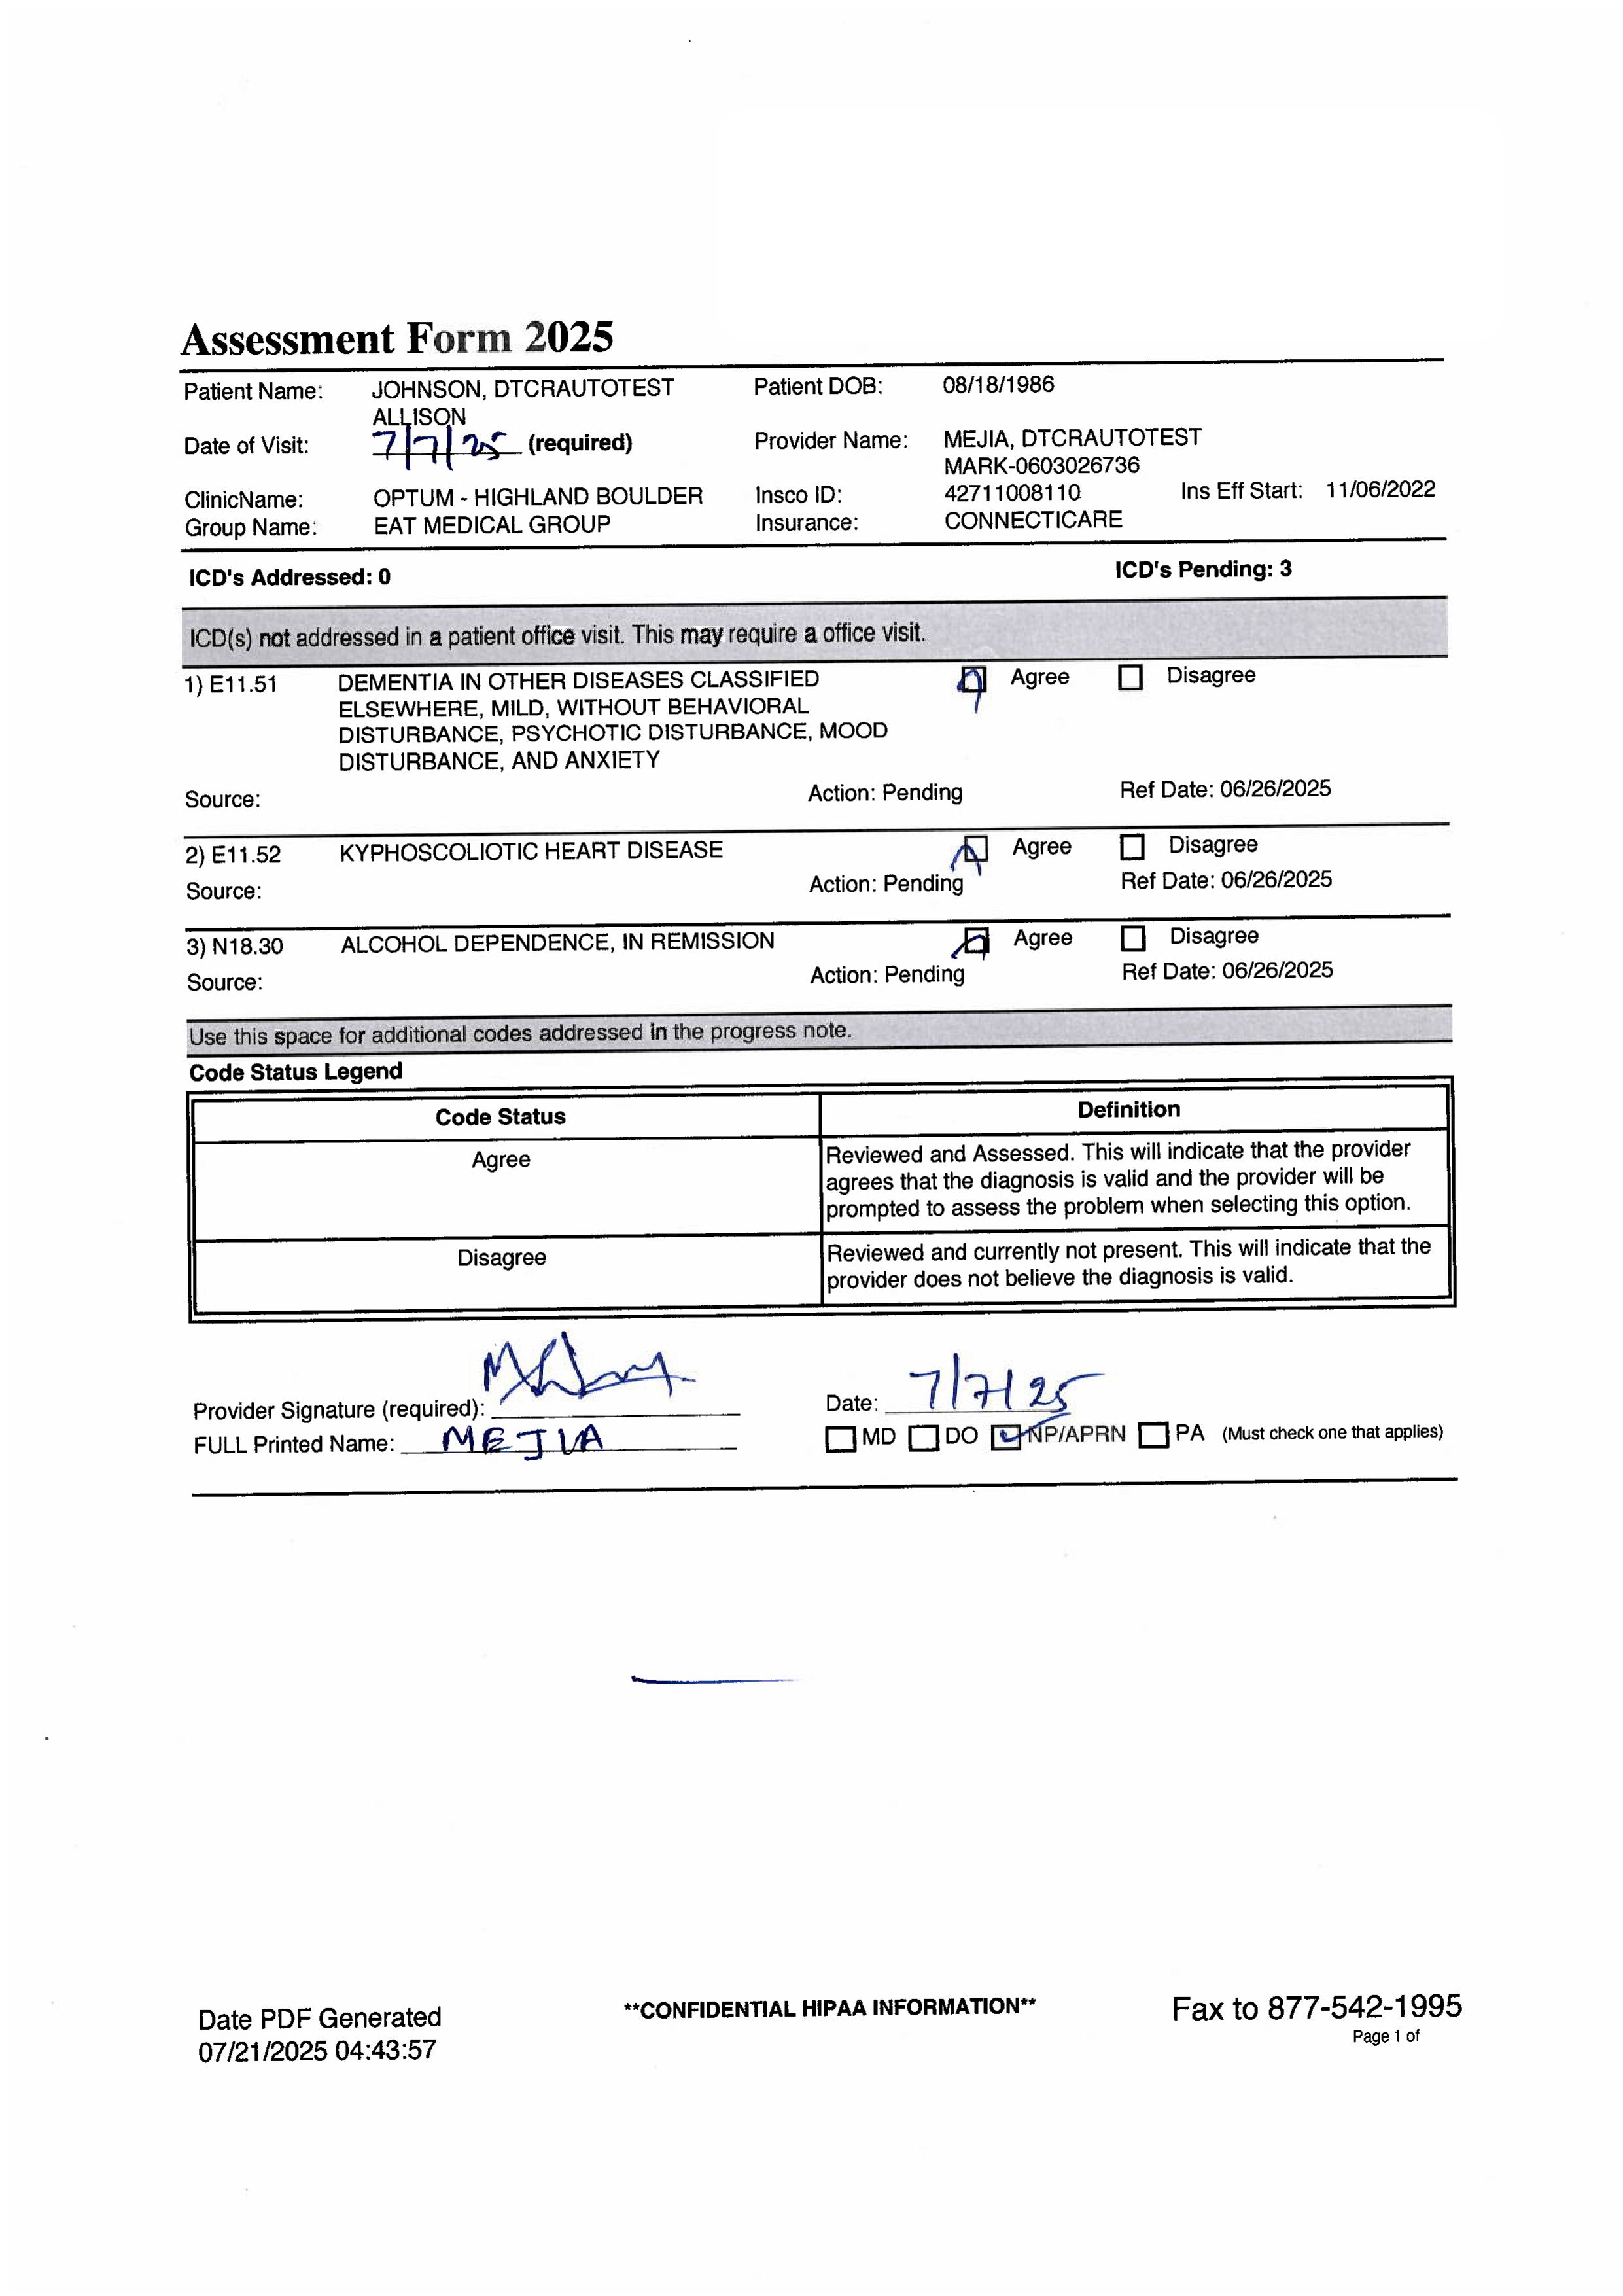 Assessment Form 2025
Patient Name: JOHNSON, DTCRAUTOTEST ALLISON Patient DOB: 08/18/1986
Date of Visit: 7/7/25 (required) Provider Name: MEJIA, DTCRAUTOTEST MARK-0603026736
ClinicName: OPTUM - HIGHLAND BOULDER Insco ID: 42711008110 Ins Eff Start: 11/06/2022
Group Name: EAT MEDICAL GROUP Insurance: CONNECTICARE
ICD's Addressed: 0 ICD's Pending: 3
ICD(s) not addressed in a patient office visit. This may require a office visit.
1) E11.51 DEMENTIA IN OTHER DISEASES CLASSIFIED Agree Disagree
ELSEWHERE, MILD, WITHOUT BEHAVIORAL
DISTURBANCE, PSYCHOTIC DISTURBANCE, MOOD
DISTURBANCE, AND ANXIETY
Source: Action: Pending Ref Date: 06/26/2025
2) E11.52 KYPHOSCOLIOTIC HEART DISEASE Agree Disagree
Source: Action: Pending Ref Date: 06/26/2025
3) N18.30 ALCOHOL DEPENDENCE, IN REMISSION Agree Disagree
Source: Action: Pending Ref Date: 06/26/2025
Use this space for additional codes addressed in the progress note.
Code Status Legend
Code Status Definition
Agree Reviewed and Assessed. This will indicate that the provider
agrees that the diagnosis is valid and the provider will be
prompted to assess the problem when selecting this option.
Disagree Reviewed and currently not present. This will indicate that the
provider does not believe the diagnosis is valid.
Provider Signature (required): Date: 7/7/25
FULL Printed Name: MEJIA MD DO NP/APRN PA (Must check one that applies)
Date PDF Generated **CONFIDENTIAL HIPAA INFORMATION** Fax to 877-542-1995
07/21/2025 04:43:57 Page 1 of